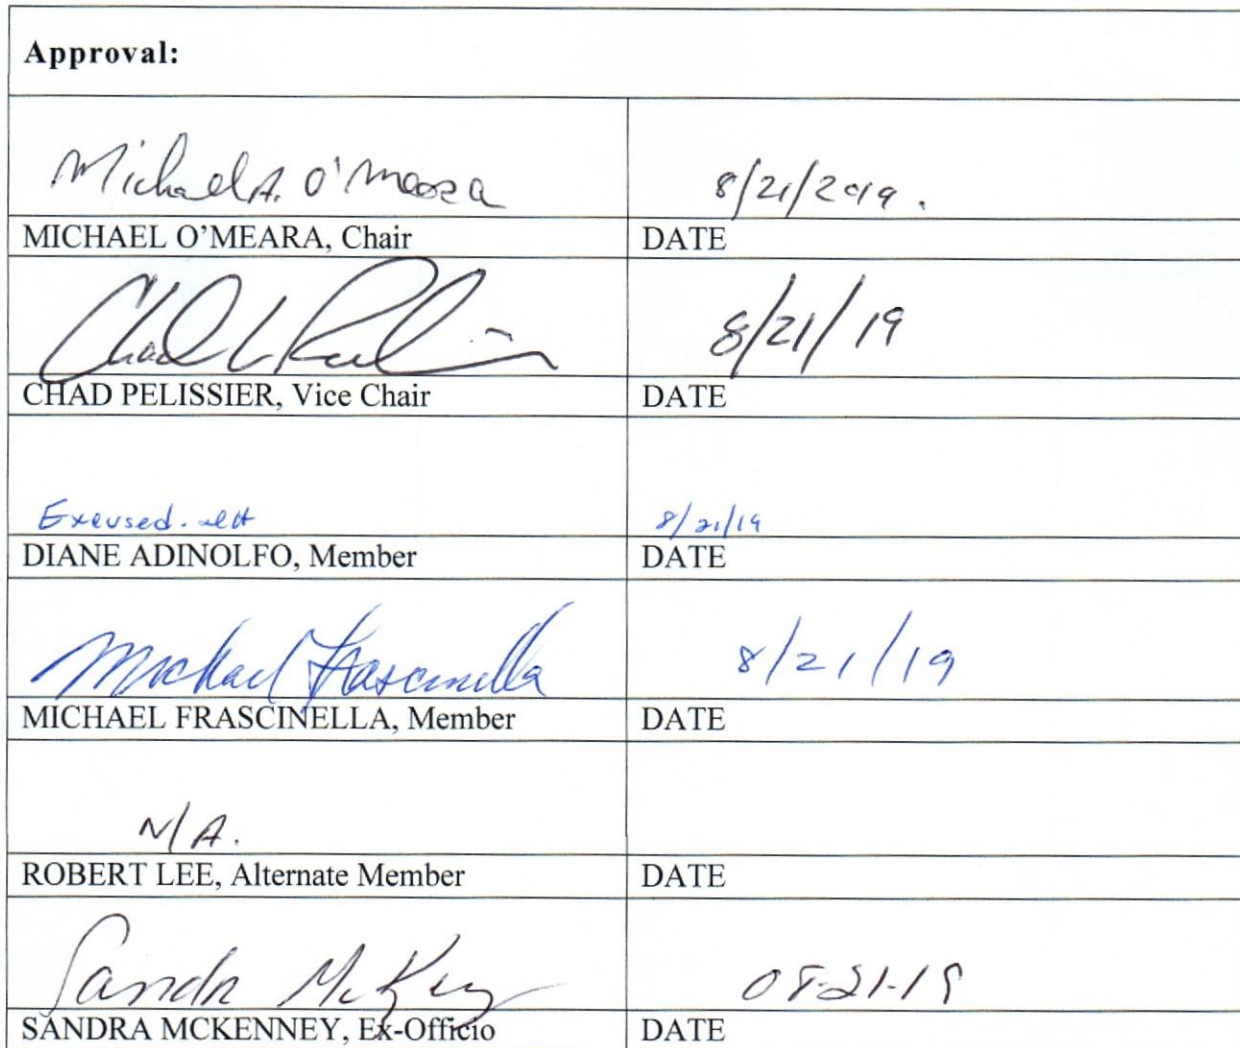 Approval:
Michael A. O'Meara 8/21/2019.
MICHAEL O’MEARA, Chair DATE
Chad 8/21/19
CHAD PELISSIER, Vice Chair DATE
Excused. 8/21/19
DIANE ADINOLFO, Member DATE
Michael Frascinella 8/21/19
MICHAEL FRASCINELLA, Member DATE
N/A.
ROBERT LEE, Alternate Member DATE
Sandra McKenney 08-21-19
SANDRA MCKENNEY, Ex-Officio DATE